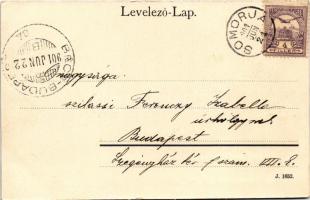 Levelező-Lap.
SOMORJA
BÉCS-BUDAPEST
901 JUN 22
nagysága.
szilassi Ferenczy Izabella
úrhölgynek
Budapest
Szegényház tér 1 szám. VIII. k.
J. 1652.